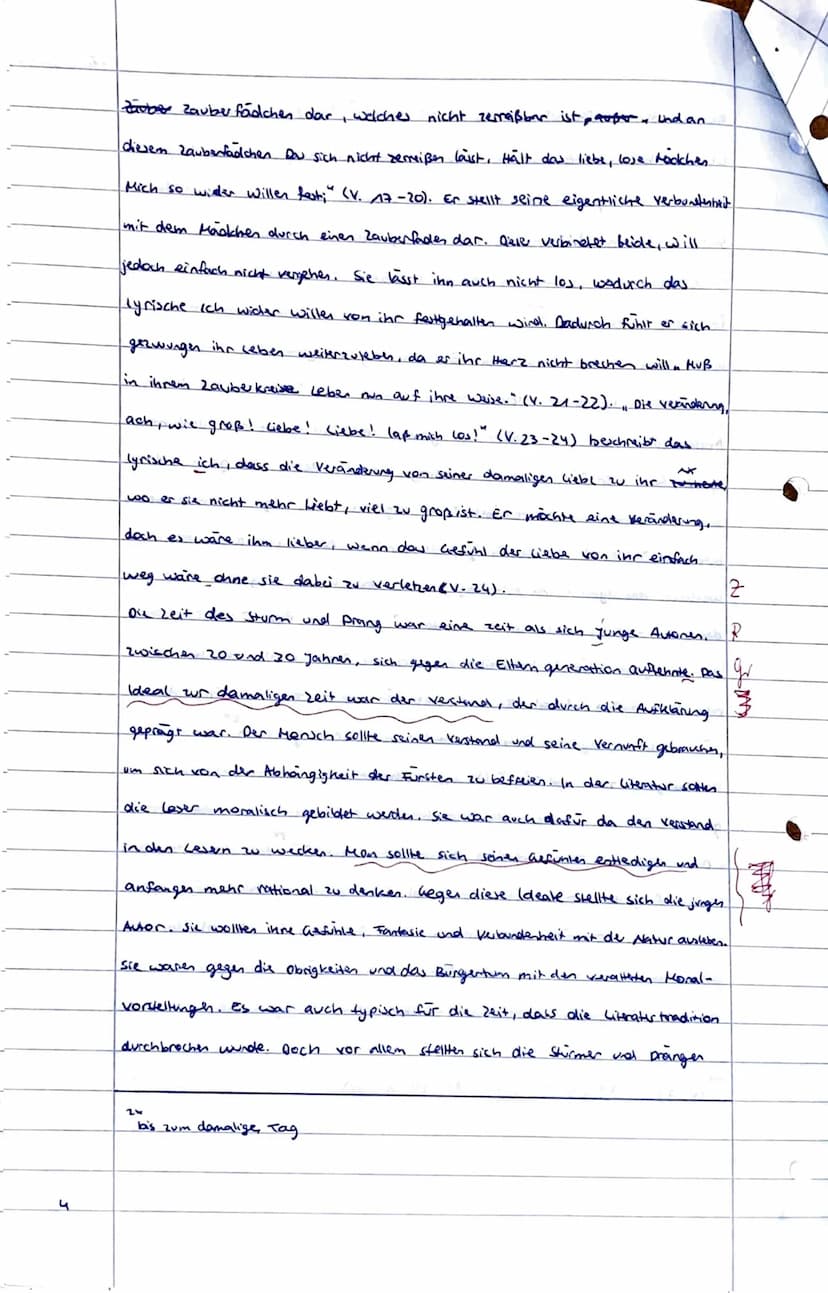 Zauber Zauberfädchen dar, welches nicht zerreißbar ist, „Und an
diesem Zauberfädchen Da sich nicht zerreißen lässt, Hält das liebe, lose Mädchen
Mich so wider Willen fest;" (V. 17-20). Er stellt seine eigentliche Verbundenheit
mit dem Mädchen durch einen Zauberfaden dar. Diese verbindet beide, will
jedoch einfach nicht vergehen. Sie lässt ihn auch nicht los, wodurch das
lyrische Ich wider Willen von ihr festgehalten wird. Dadurch fühlt er sich
gezwungen ihr Leben weiterzuleben, da er ihr Herz nicht brechen will „Muß
in ihrem Zauberkreise Leben nun auf ihre Weise." (V. 21-22). „Die Veränderung,
ach, wie groß! Liebe! Liebe! laß mich los!" (V. 23-24) beschreibt das
lyrische ich, dass die Veränderung von seiner damaligen Liebe zu ihr
wo er sie nicht mehr liebt, viel zu groß ist. Er möchte eine Veränderung,
doch es wäre ihm lieber, wenn das Gefühl der Liebe von ihr einfach
weg wäre ohne sie dabei zu verletzen (V. 24).
Z
Die Zeit des Sturm und Drang war eine Zeit als sich junge Autoren,
R
zwischen 20 und 30 Jahren, sich gegen die Elterngeneration auflehnte. Das
Gr
Ideal zur damaligen Zeit war der Verstand, der durch die Aufklärung
geprägt war. Der Mensch sollte seinen Verstand und seine Vernunft gebrauchen,
um sich von der Abhängigkeit der Fürsten zu befreien. In der Literatur sollten
die Leser moralisch gebildet werden. Sie war auch dafür da den Verstand
in den Lesern zu wecken. Man sollte sich seinen Gefühlen entledigen und
anfangen mehr rational zu denken. Gegen diese Ideale stellte sich die jungen
Autor. Sie wollten ihre Gefühle, Fantasie und Verbundenheit mit der Natur ausleben.
Sie waren gegen die Obrigkeiten und das Bürgertum mit den veralteten Moral-
vorstellungen. Es war auch typisch für die Zeit, dass die Literaturtradition
durchbrochen wurde. Doch vor allem stellten sich die Stürmer und Dränger
bis zum damalige Tag
4